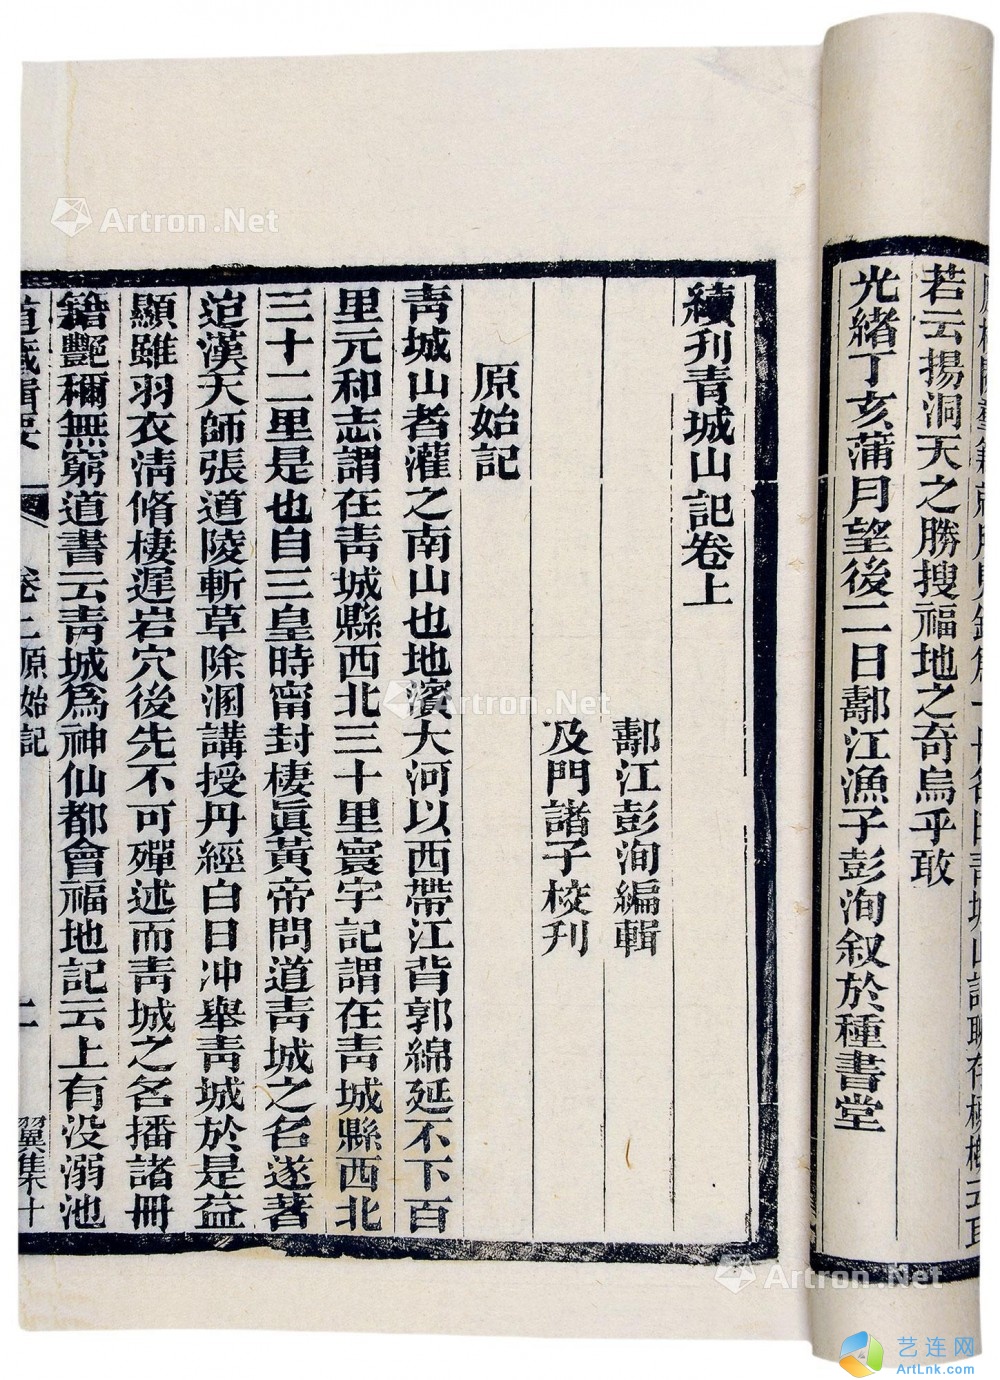 若云揚洞天之勝搜福地之奇烏乎敢
光緒丁亥蒲月望後二日鄹江漁子彭洵叙於種書堂
續刊青城山記卷上
鄹江彭洵編輯
及門諸子校刋
原始記
靑城山者灌之南山也地濱大河以西帶江背郭綿延不下百
里元和志謂在靑城縣西北三十里寰宇記謂在靑城縣西北
三十二里是也自三皇時甯封棲眞黃帝問道靑城之名遂著
迨漢天師張道陵斬草除溷講授丹經白日冲舉靑城於是益
顯雖羽衣淸脩棲遲岩穴後先不可殫述而靑城之名播諸冊
籍艷稱無窮道書云靑城爲神仙都會福地記云上有没溺池
道藏輯要
卷上原始記
一
翼集十
Artron.Net
Artron.Net
Artron.Net
艺连网
ArtLnk.com